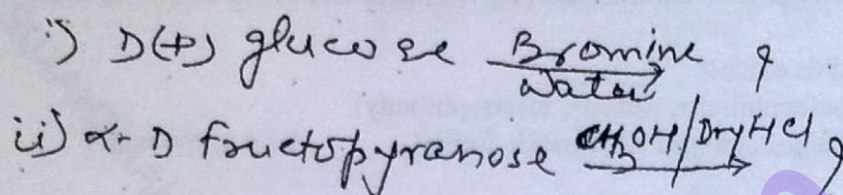 i) D(+) glucose Bromine Water ?
ii) α-D fructopyranose CH3OH/Dry HCl ?